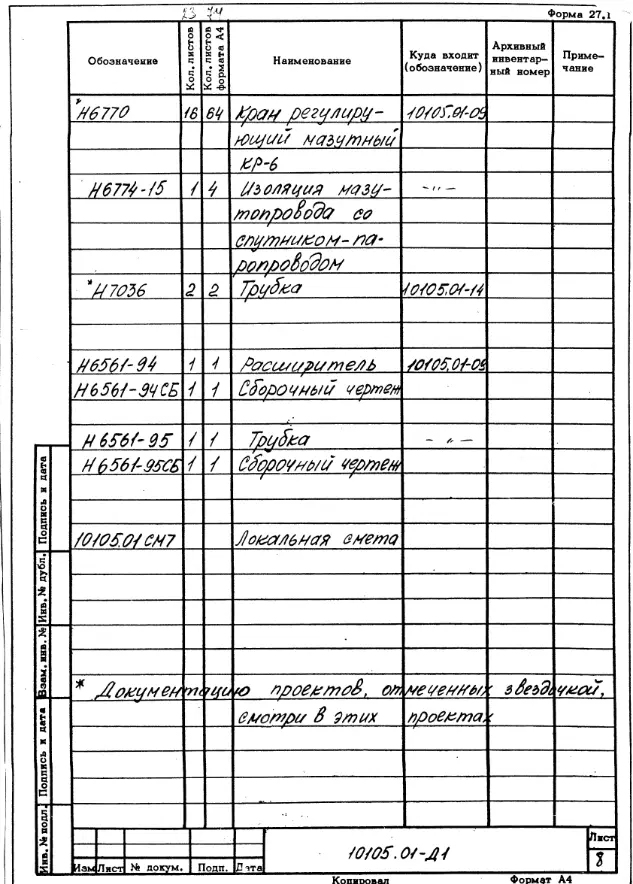 23 74
Форма 27.1
Обозначение Кол. листов Кол. листов формата А4 Наименование Куда входит (обозначение) Архивный инвентарный номер Примечание
*Н6770 16 64 Кран регулиру- 10105.01-09
ющий мазутный
КР-6
Н6774-15 1 4 Изоляция мазу- -〃-
топровода со
спутником-па-
ропроводом
*Н7036 2 2 Трубка 10105.01-14
Н6561-94 1 1 Расширитель 10105.01-09
Н6561-94СБ 1 1 Сборочный чертеж
Н6561-95 1 1 Трубка -〃-
Н6561-95СБ 1 1 Сборочный чертеж
10105.01 СМ7 Локальная смета
* Документацию проектов, отмеченных звездочкой,
смотри в этих проектах
Инв. № подл. Подпись и дата Взам. инв. № Инв. № дубл. Подпись и дата
10105.01-Д1
Лист
8
Изм Лист № докум. Подп. Дата
Копировал Формат А4